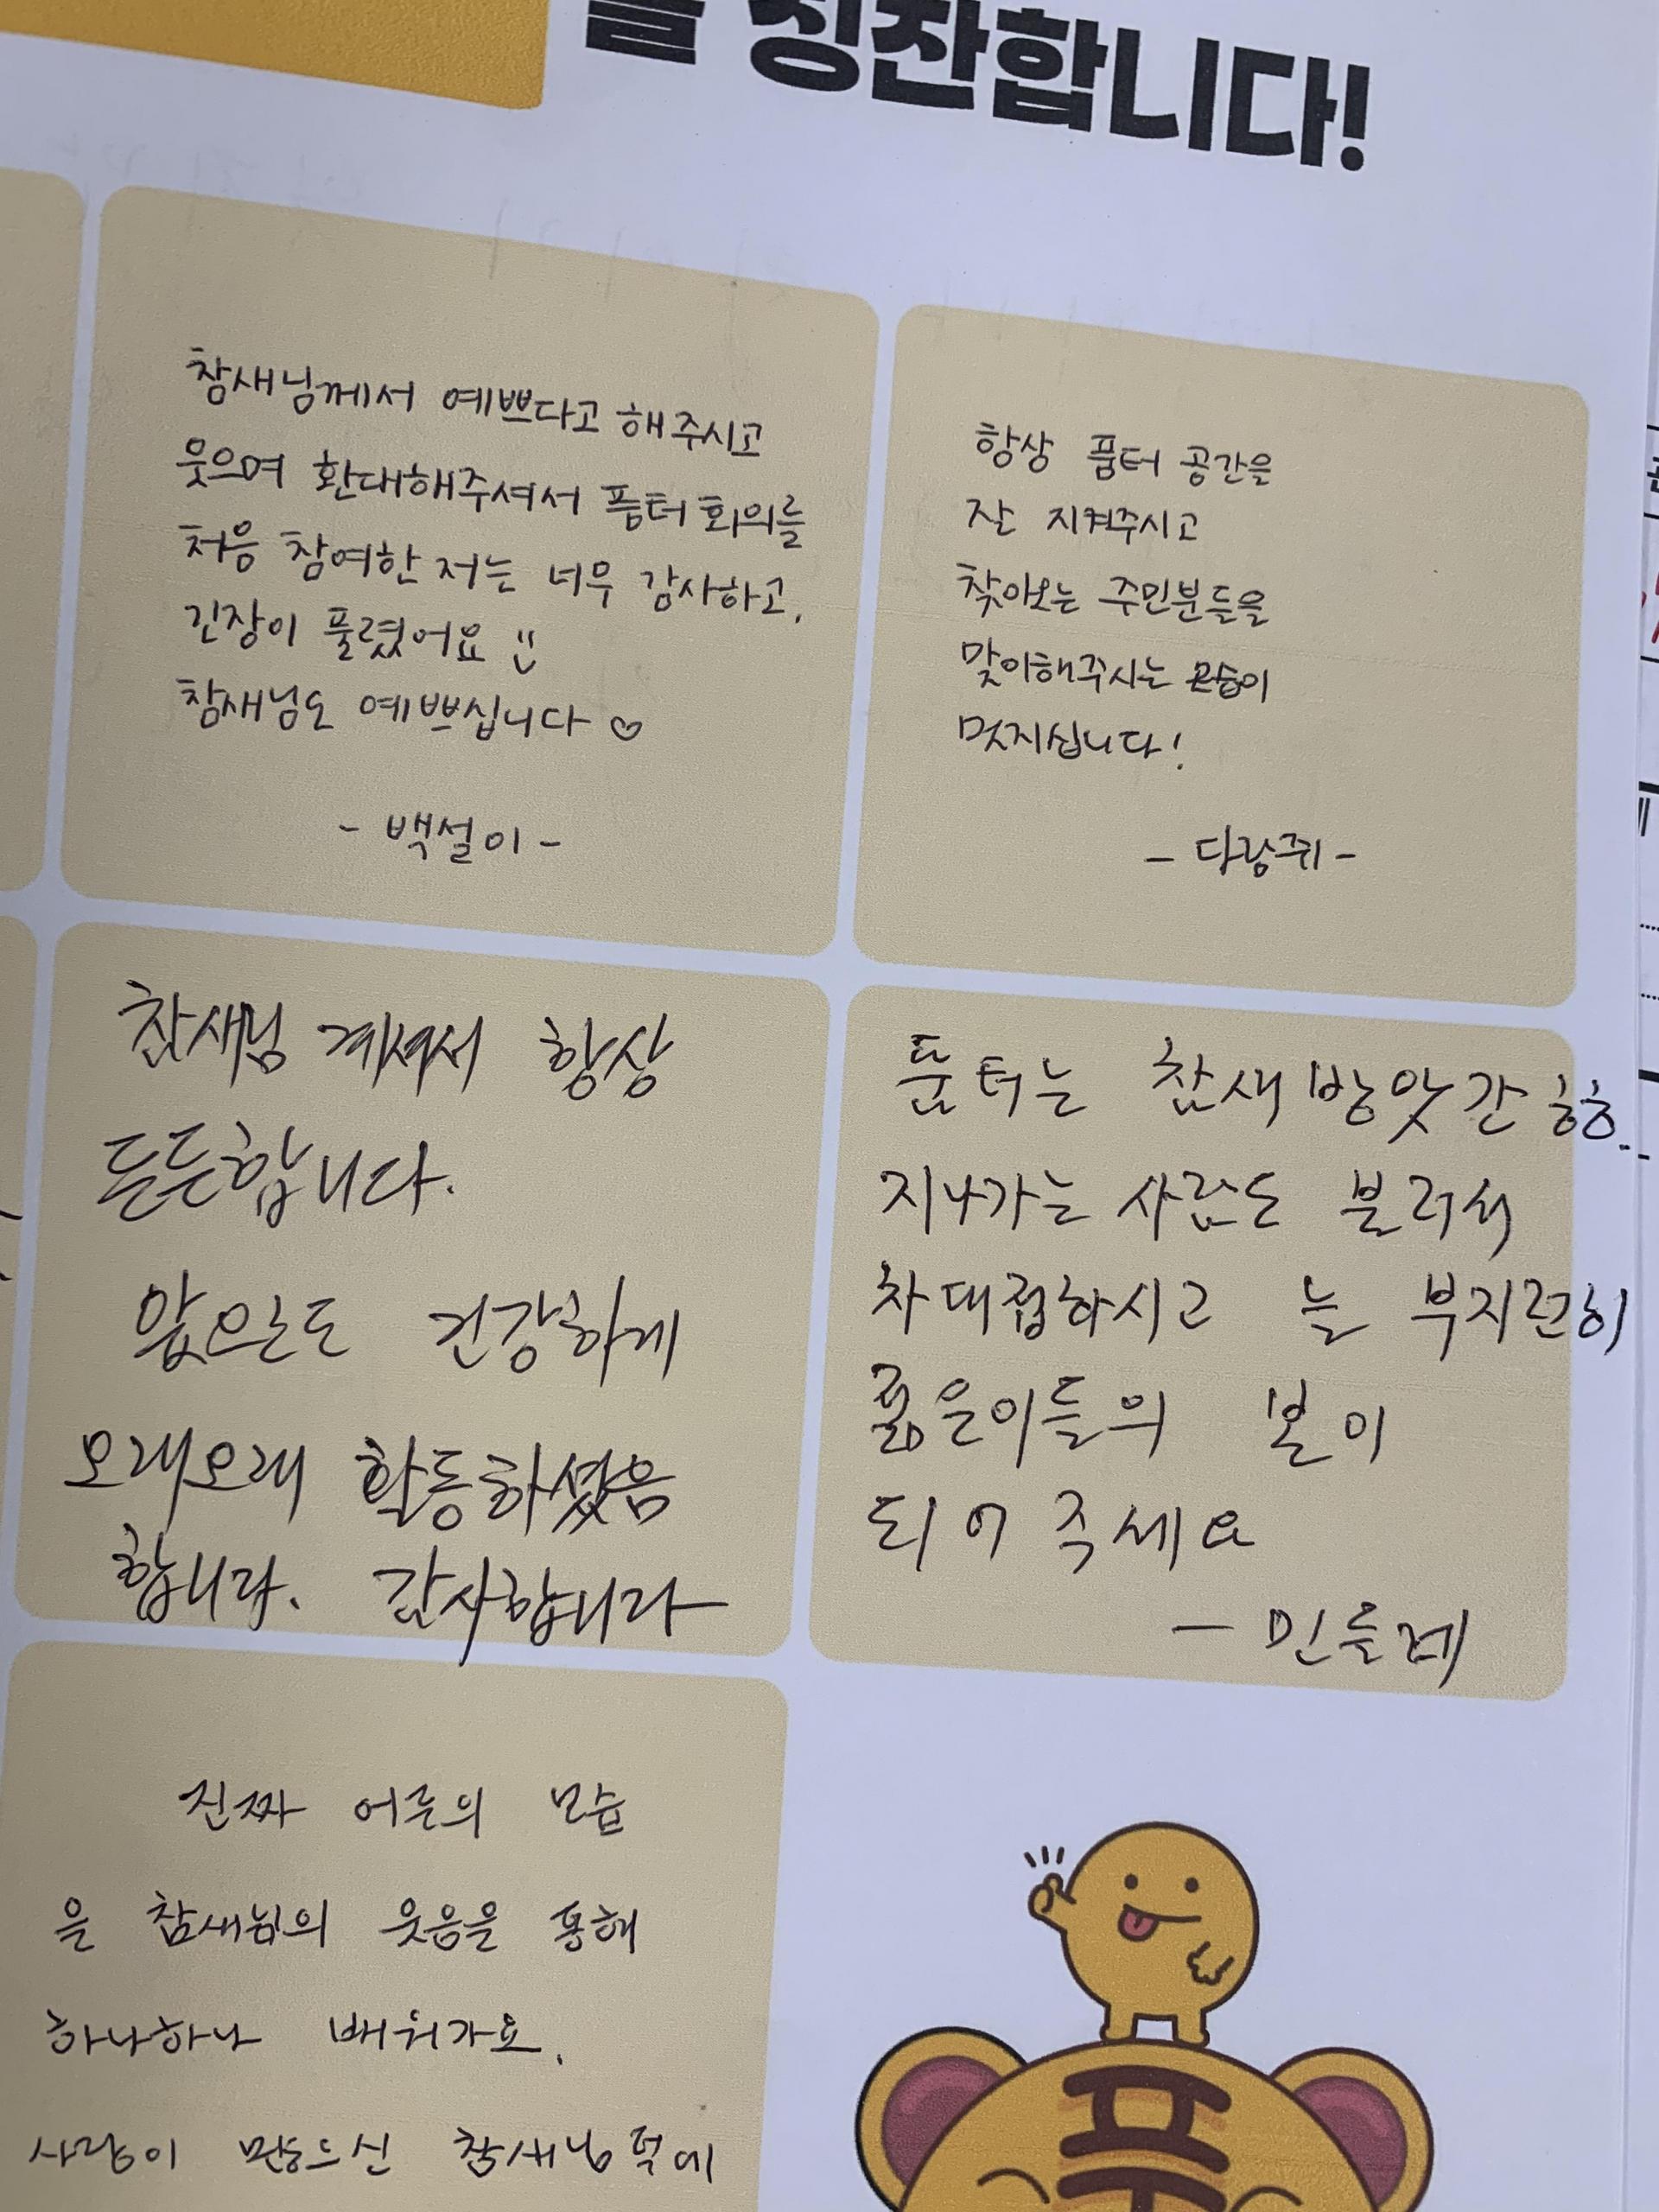 를 칭찬합니다!
참새님께서 예쁘다고 해주시고
웃으며 환대해주셔서 품터 회의를
처음 참여한 저는 너무 감사하고,
긴장이 풀렸어요 :)
참새님도 예쁘십니다 ♡
- 백설이 -
항상 품터 공간을
잘 지켜주시고
찾아오는 주민분들을
맞이해주시는 모습이
멋지십니다!
- 다람쥐 -
참새님 계셔서 항상
든든합니다.
앞으로도 건강하게
오래오래 활동하셨음
합니다. 감사합니다
품터는 참새방앗간 ㅎㅎ..
지나가는 사람도 불러서
차대접하시고 늘 부지런히
젊은이들의 본이
되어 주세요
- 민들레
진짜 어른의 모습
을 참새님의 웃음을 통해
하나하나 배워가요.
사랑이 많으신 참새님 덕에
품